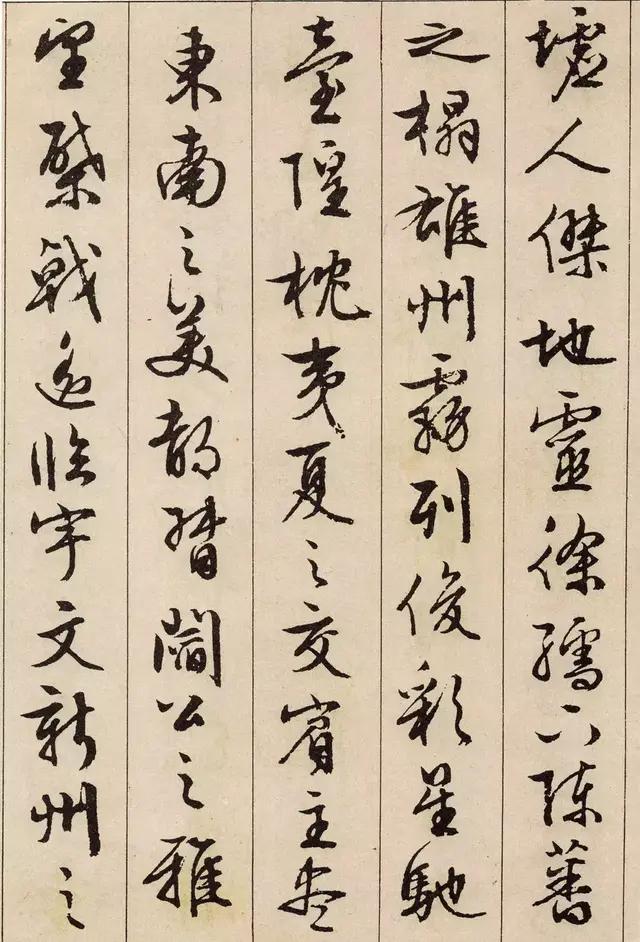 墟人傑地靈徐孺下陳蕃
之榻雄州霧列俊彩星馳
臺隍枕夷夏之交賓主盡
東南之美都督閻公之雅
望棨戟遙臨宇文新州之